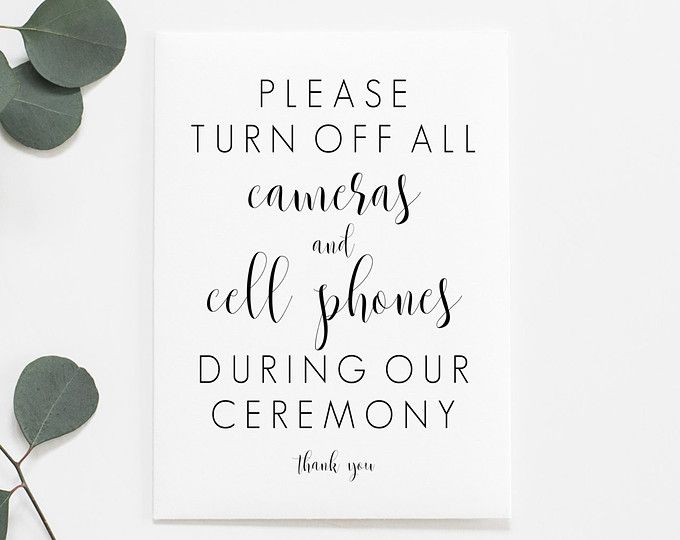 PLEASE
TURN OFF ALL
cameras
and
cell phones
DURING OUR
CEREMONY
thank you